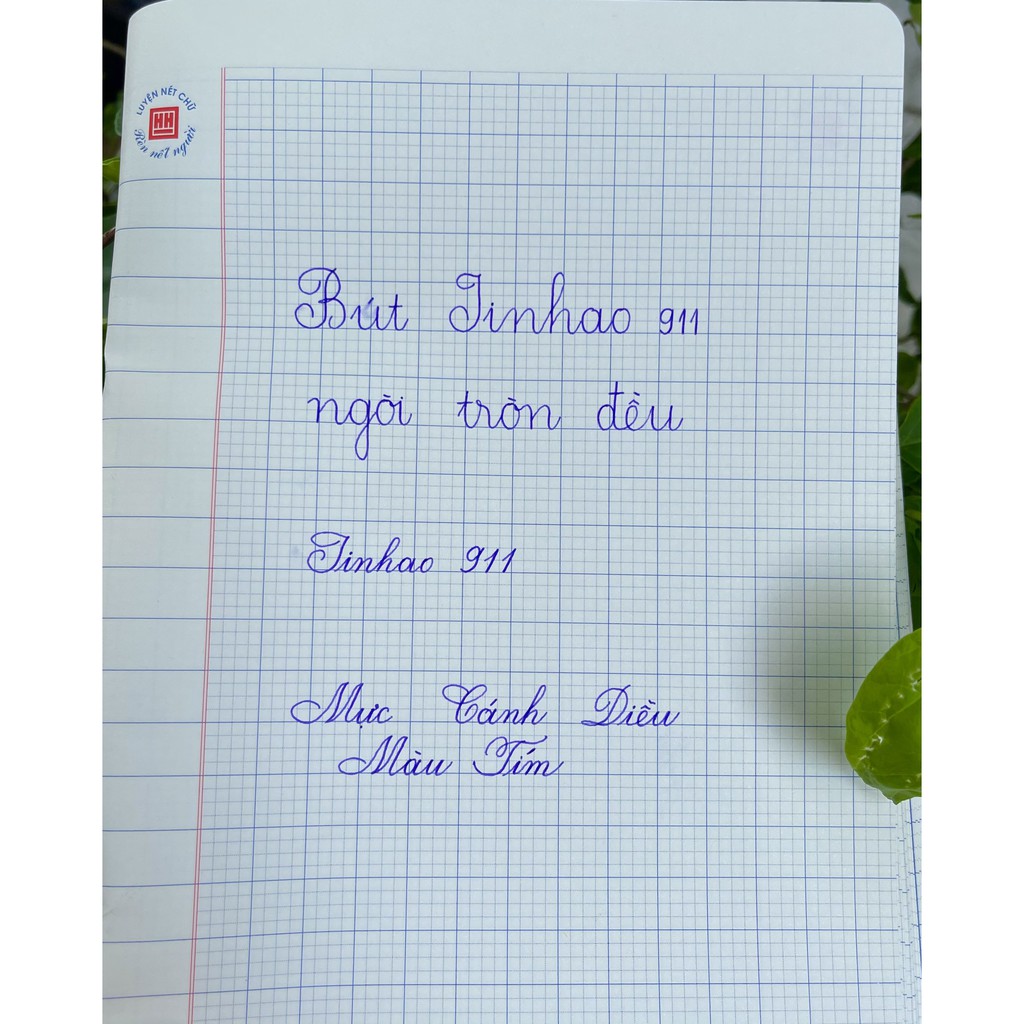 LUYỆN NẾT CHỮ
HH
Rèn nết người
Bút Jinhao 911
ngòi tròn đều
Jinhao 911
Mực Cánh Diều
Màu Tím